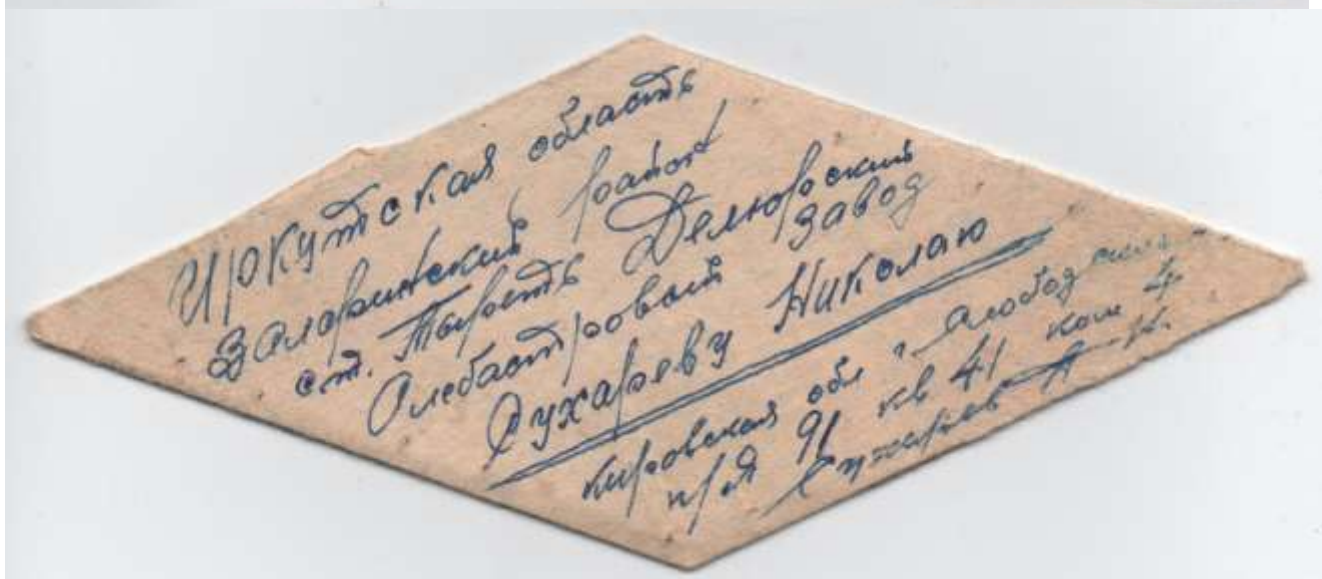 Иркутская область
Заларинский район
ст. Тыреть Делюрский
Алебастровый завод
Сухареву Николаю
Кировская обл г. Слободской
п/я 91 кв 41 ком 4
Сухарев А